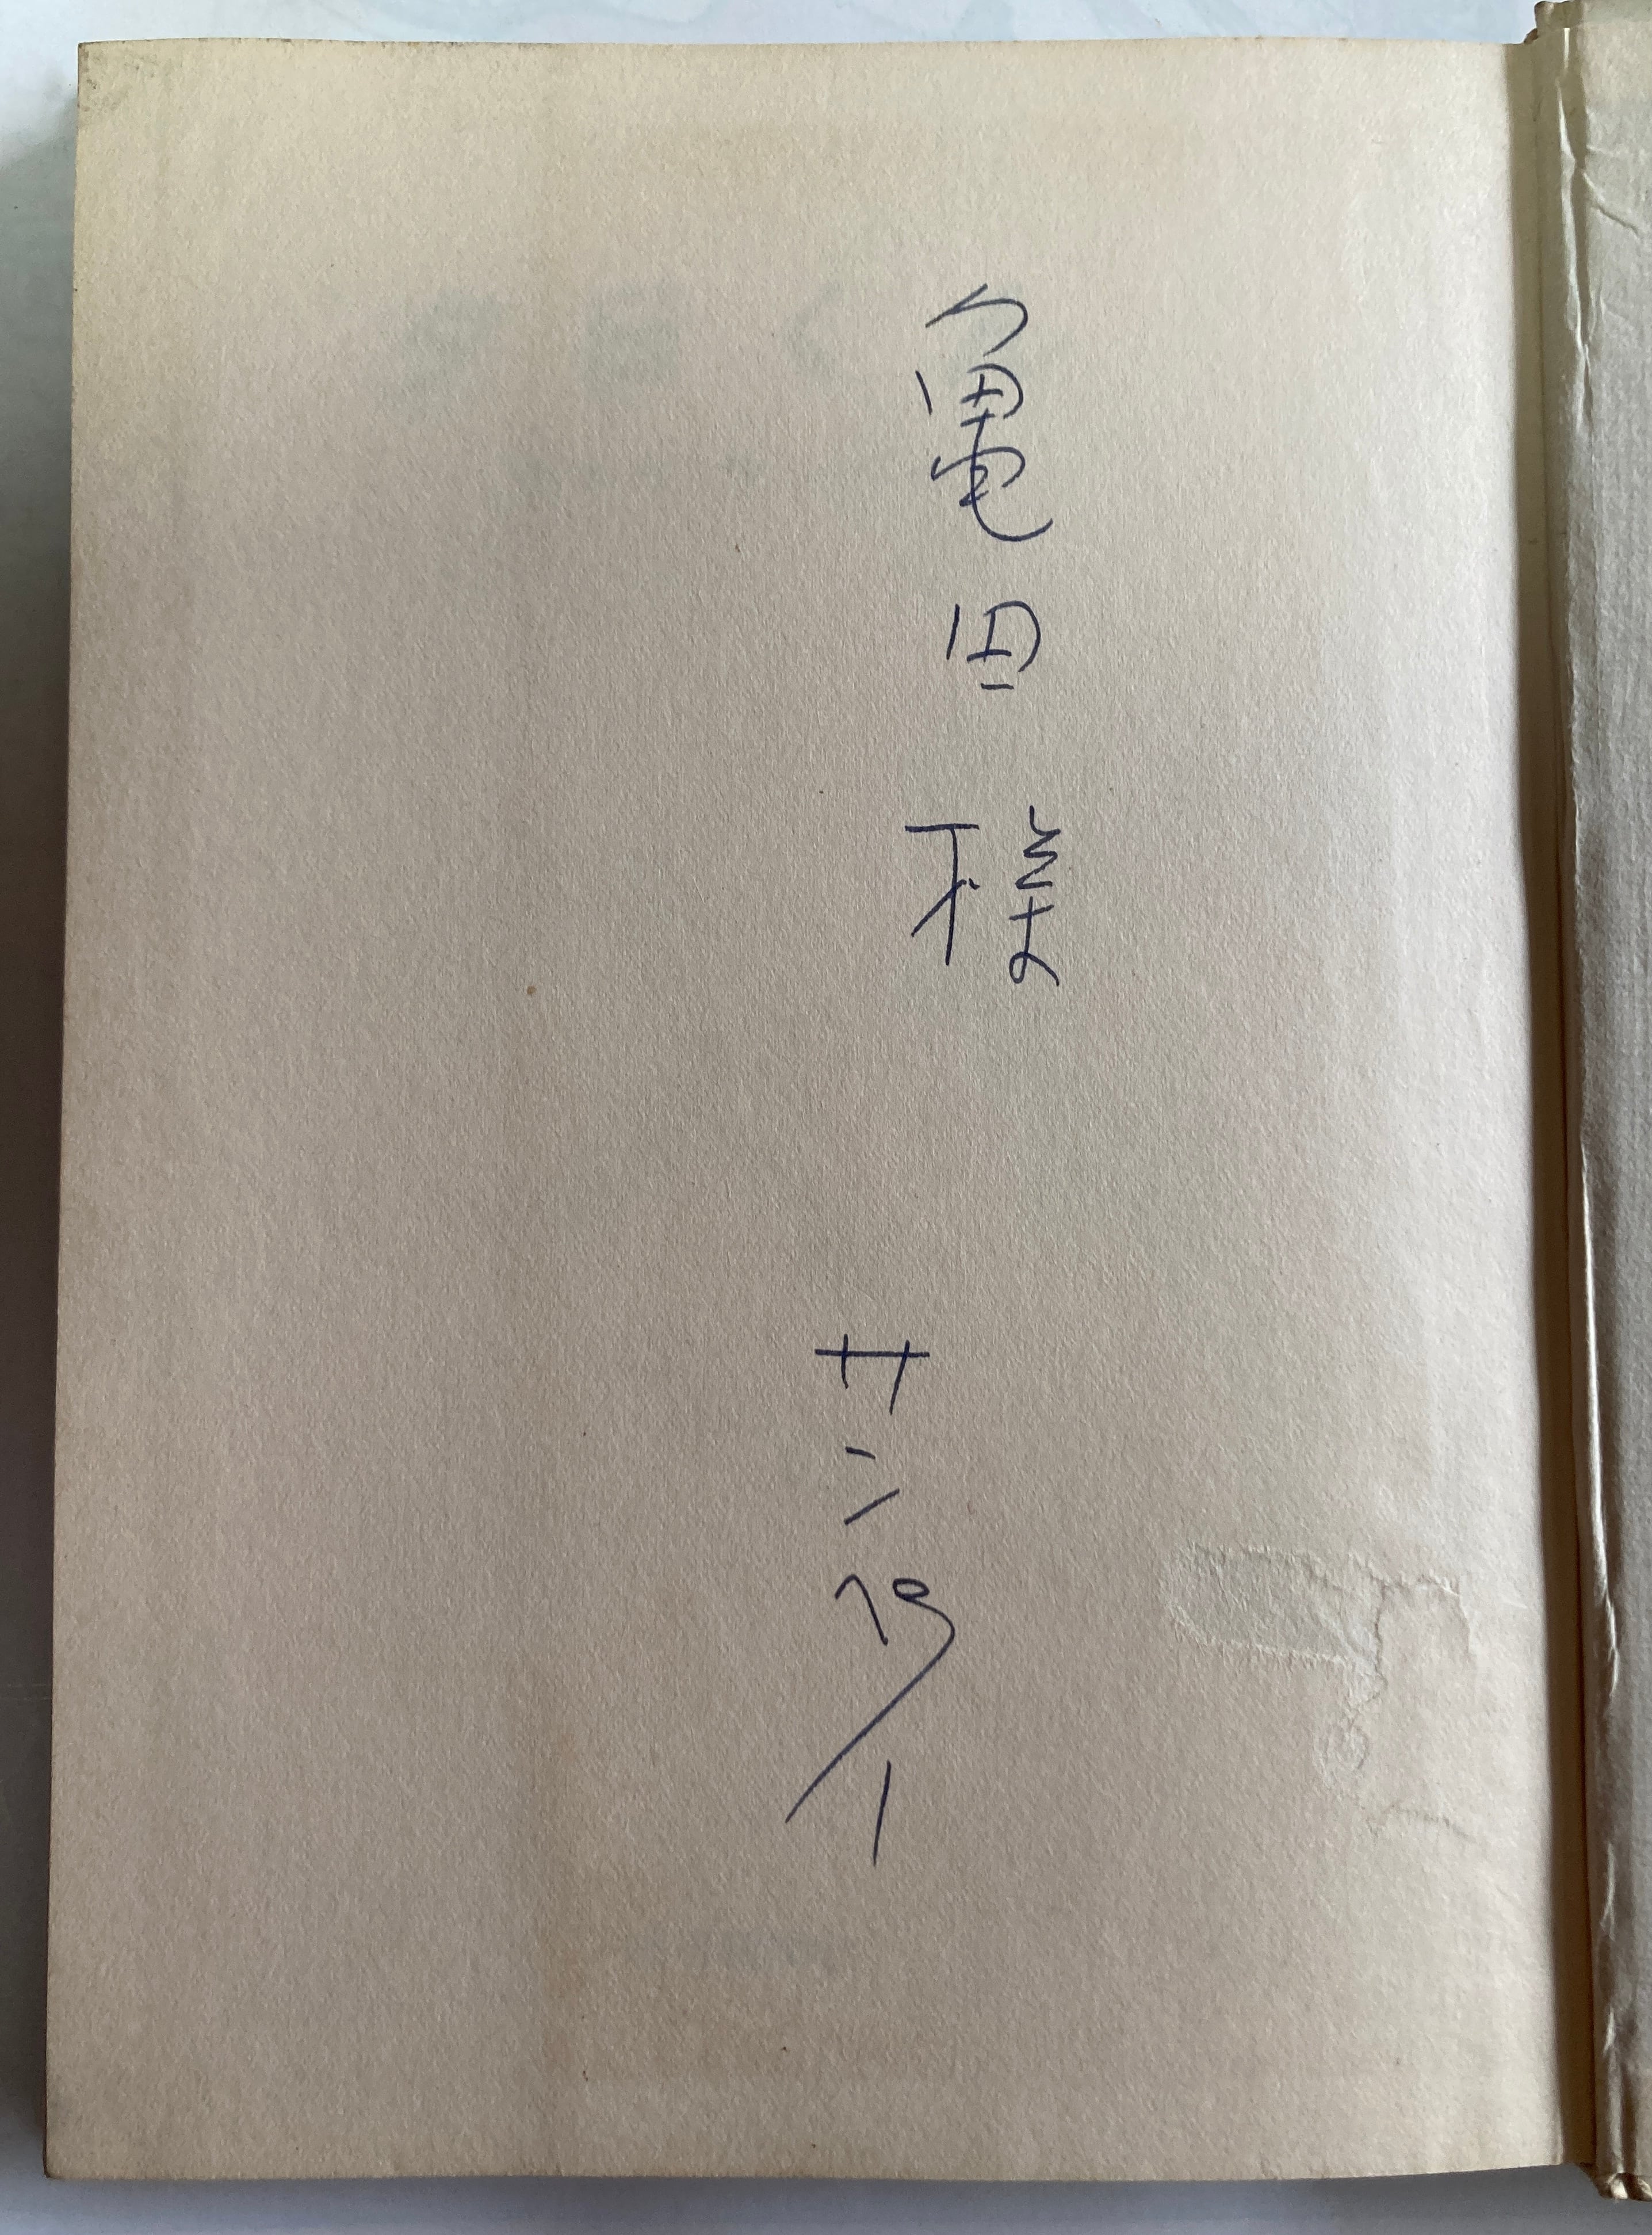 亀田様
サンペイ